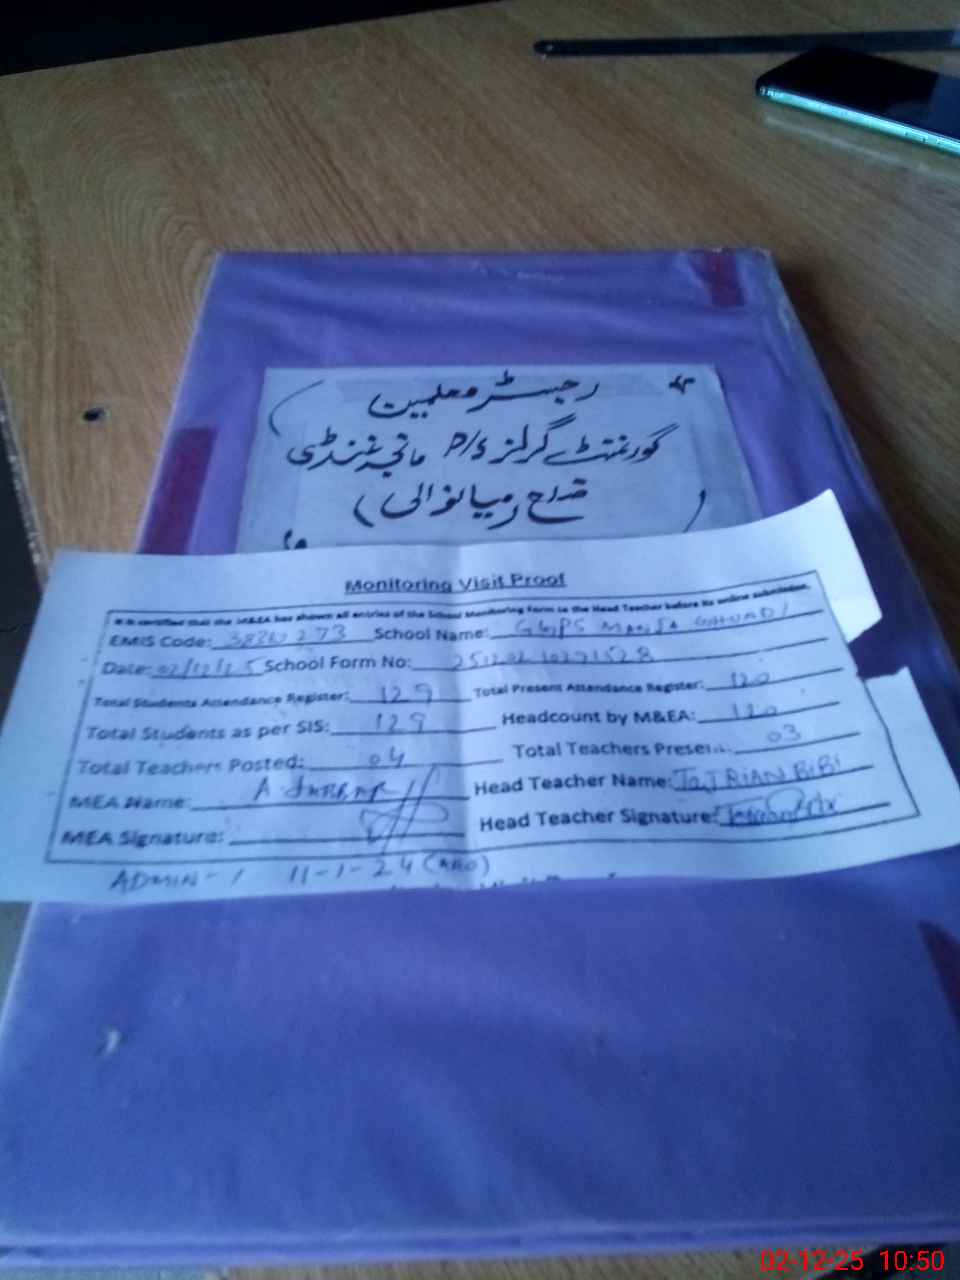 رجسٹر معلمین
گورنمنٹ گرلز P/S مانجہ غنڈی
ضلع میانوالی
Monitoring Visit Proof
It is certified that the M&EA has shown all entries of the School Monitoring Form to the Head Teacher before its online submission.
EMIS Code: School Name: GGPS
Date: 02/12/25 School Form No:
Total Students Attendance Register: 129 Total Present Attendance Register: 120
Total Students as per SIS: 129 Headcount by M&EA: 120
Total Teachers Posted: 04 Total Teachers Present: 03
MEA Name: Head Teacher Name: TAJ RIAN BIBI
MEA Signature: Head Teacher Signature:
ADMIN-1 11-1-24
02-12-25 10:50